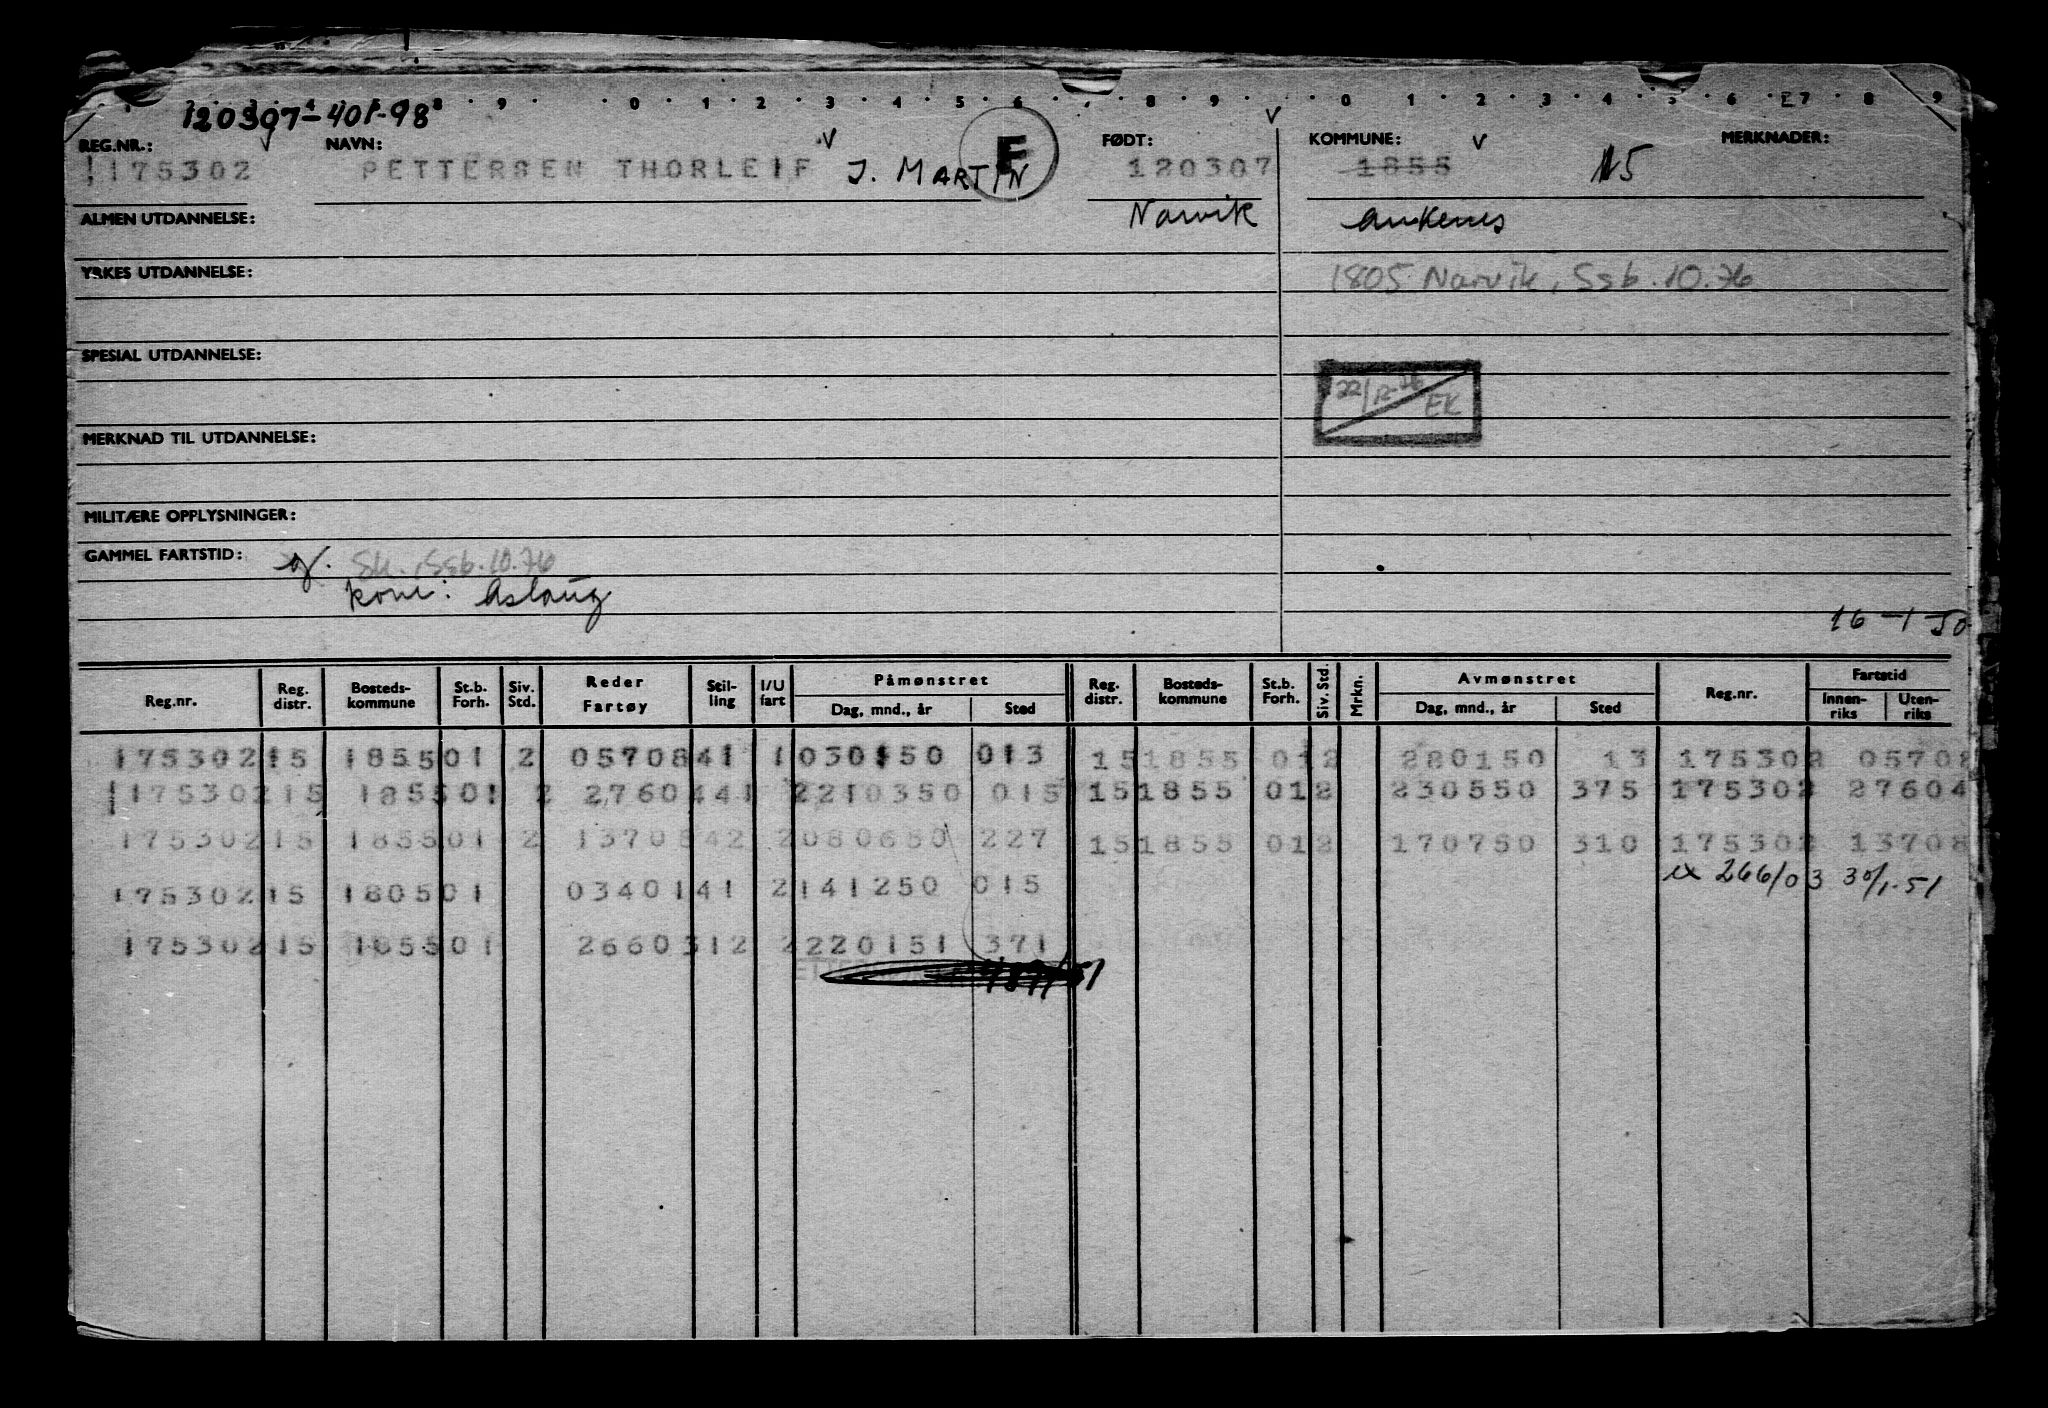 8 9 0 1 2 3 4 5 6 7 8 9 0 1 2 3 4 5 6 7 8 9
120307-401-98
REG.NR.: NAVN: FØDT: KOMMUNE: MERKNADER:
175302 PETTERSEN THORLEIF J. MARTIN F 120307 1855 15
ALMEN UTDANNELSE: Narvik Ankenes
YRKES UTDANNELSE: 1805 Narvik, Ssb. 10.76
SPESIAL UTDANNELSE:
22/12-76 EK
MERKNAD TIL UTDANNELSE:
MILITÆRE OPPLYSNINGER:
GAMMEL FARTSTID: g. Sk. Ssb. 10.76
kone: Aslaug
16-1-50
Reg.nr. Reg. distr. Bosteds-kommune St.b. Forh. Siv. Std. Reder Fartøy Stil-ling I/U fart Påmønstret Dag, mnd., år Sted Reg. distr. Bosteds-kommune St.b. Forh. Siv. Std. Mrkn. Avmønstret Dag, mnd., år Sted Reg.nr. Fartstid Innen-riks Uten-riks
175302 15 1855 01 2 05708 41 1 030150 013 15 1855 01 2 280150 13 175302 05708
175302 15 1855 01 2 27604 41 2 210350 015 15 1855 01 2 230550 375 175302 27604
175302 15 1855 01 2 13708 42 2 080650 227 15 1855 01 2 170750 310 175302 13708
175302 15 1805 01 03401 41 2 141250 015 ex 266/03 30/1-51
175302 15 1855 01 26603 12 2 220151 371